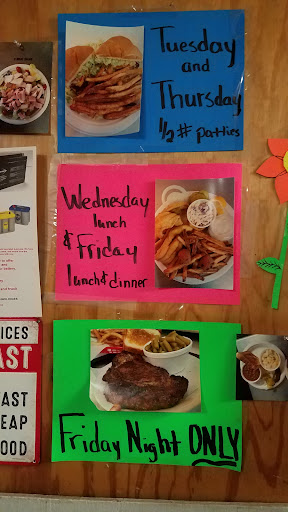 Tuesday
and
Thursday
1/2 # patties
Wednesday
lunch
& Friday
lunch & dinner
Friday Night ONLY
ICES
AST
AST
EAP
OOD